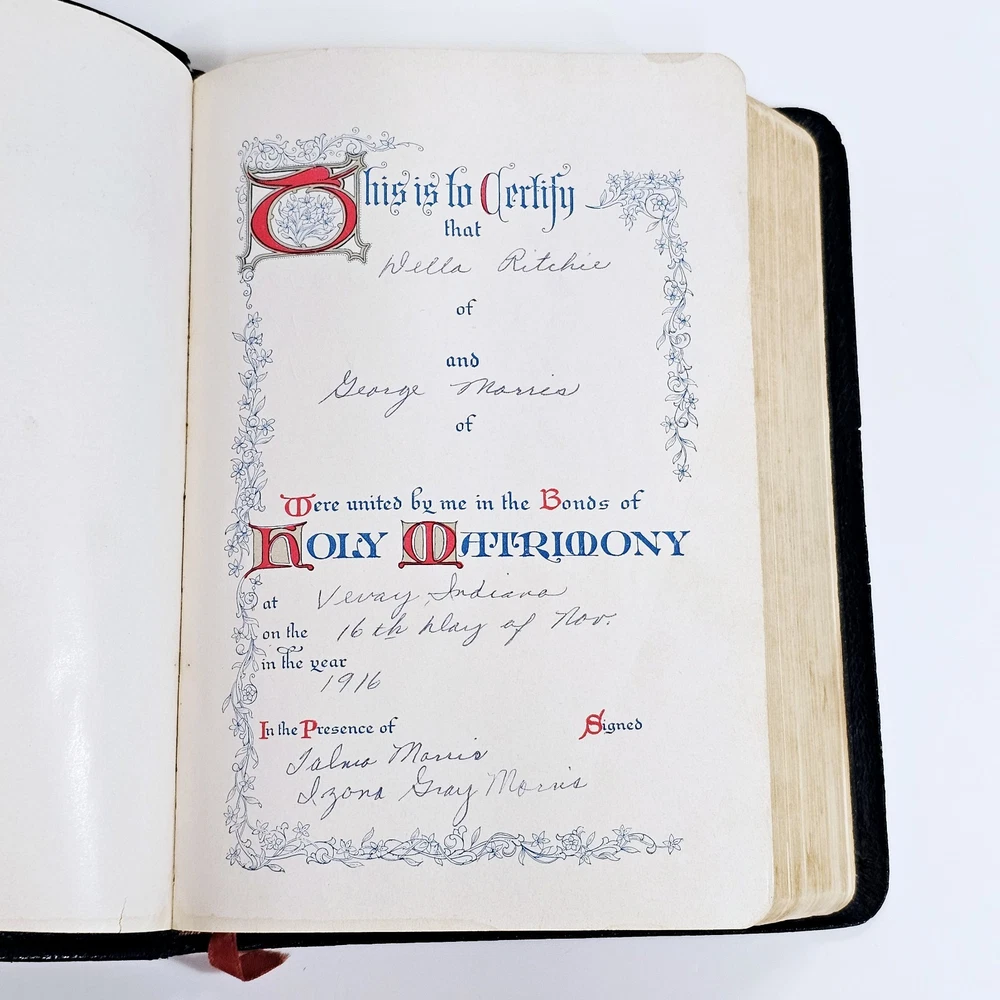 This is to Certify
that
Della Ritchie
of
and
George Morris
of
Were united by me in the Bonds of
HOLY MATRIMONY
at Vevay, Indiana
on the 16th Day of Nov.
in the year
1916
In the Presence of Signed
Talma Morris
Izona Gray Morris